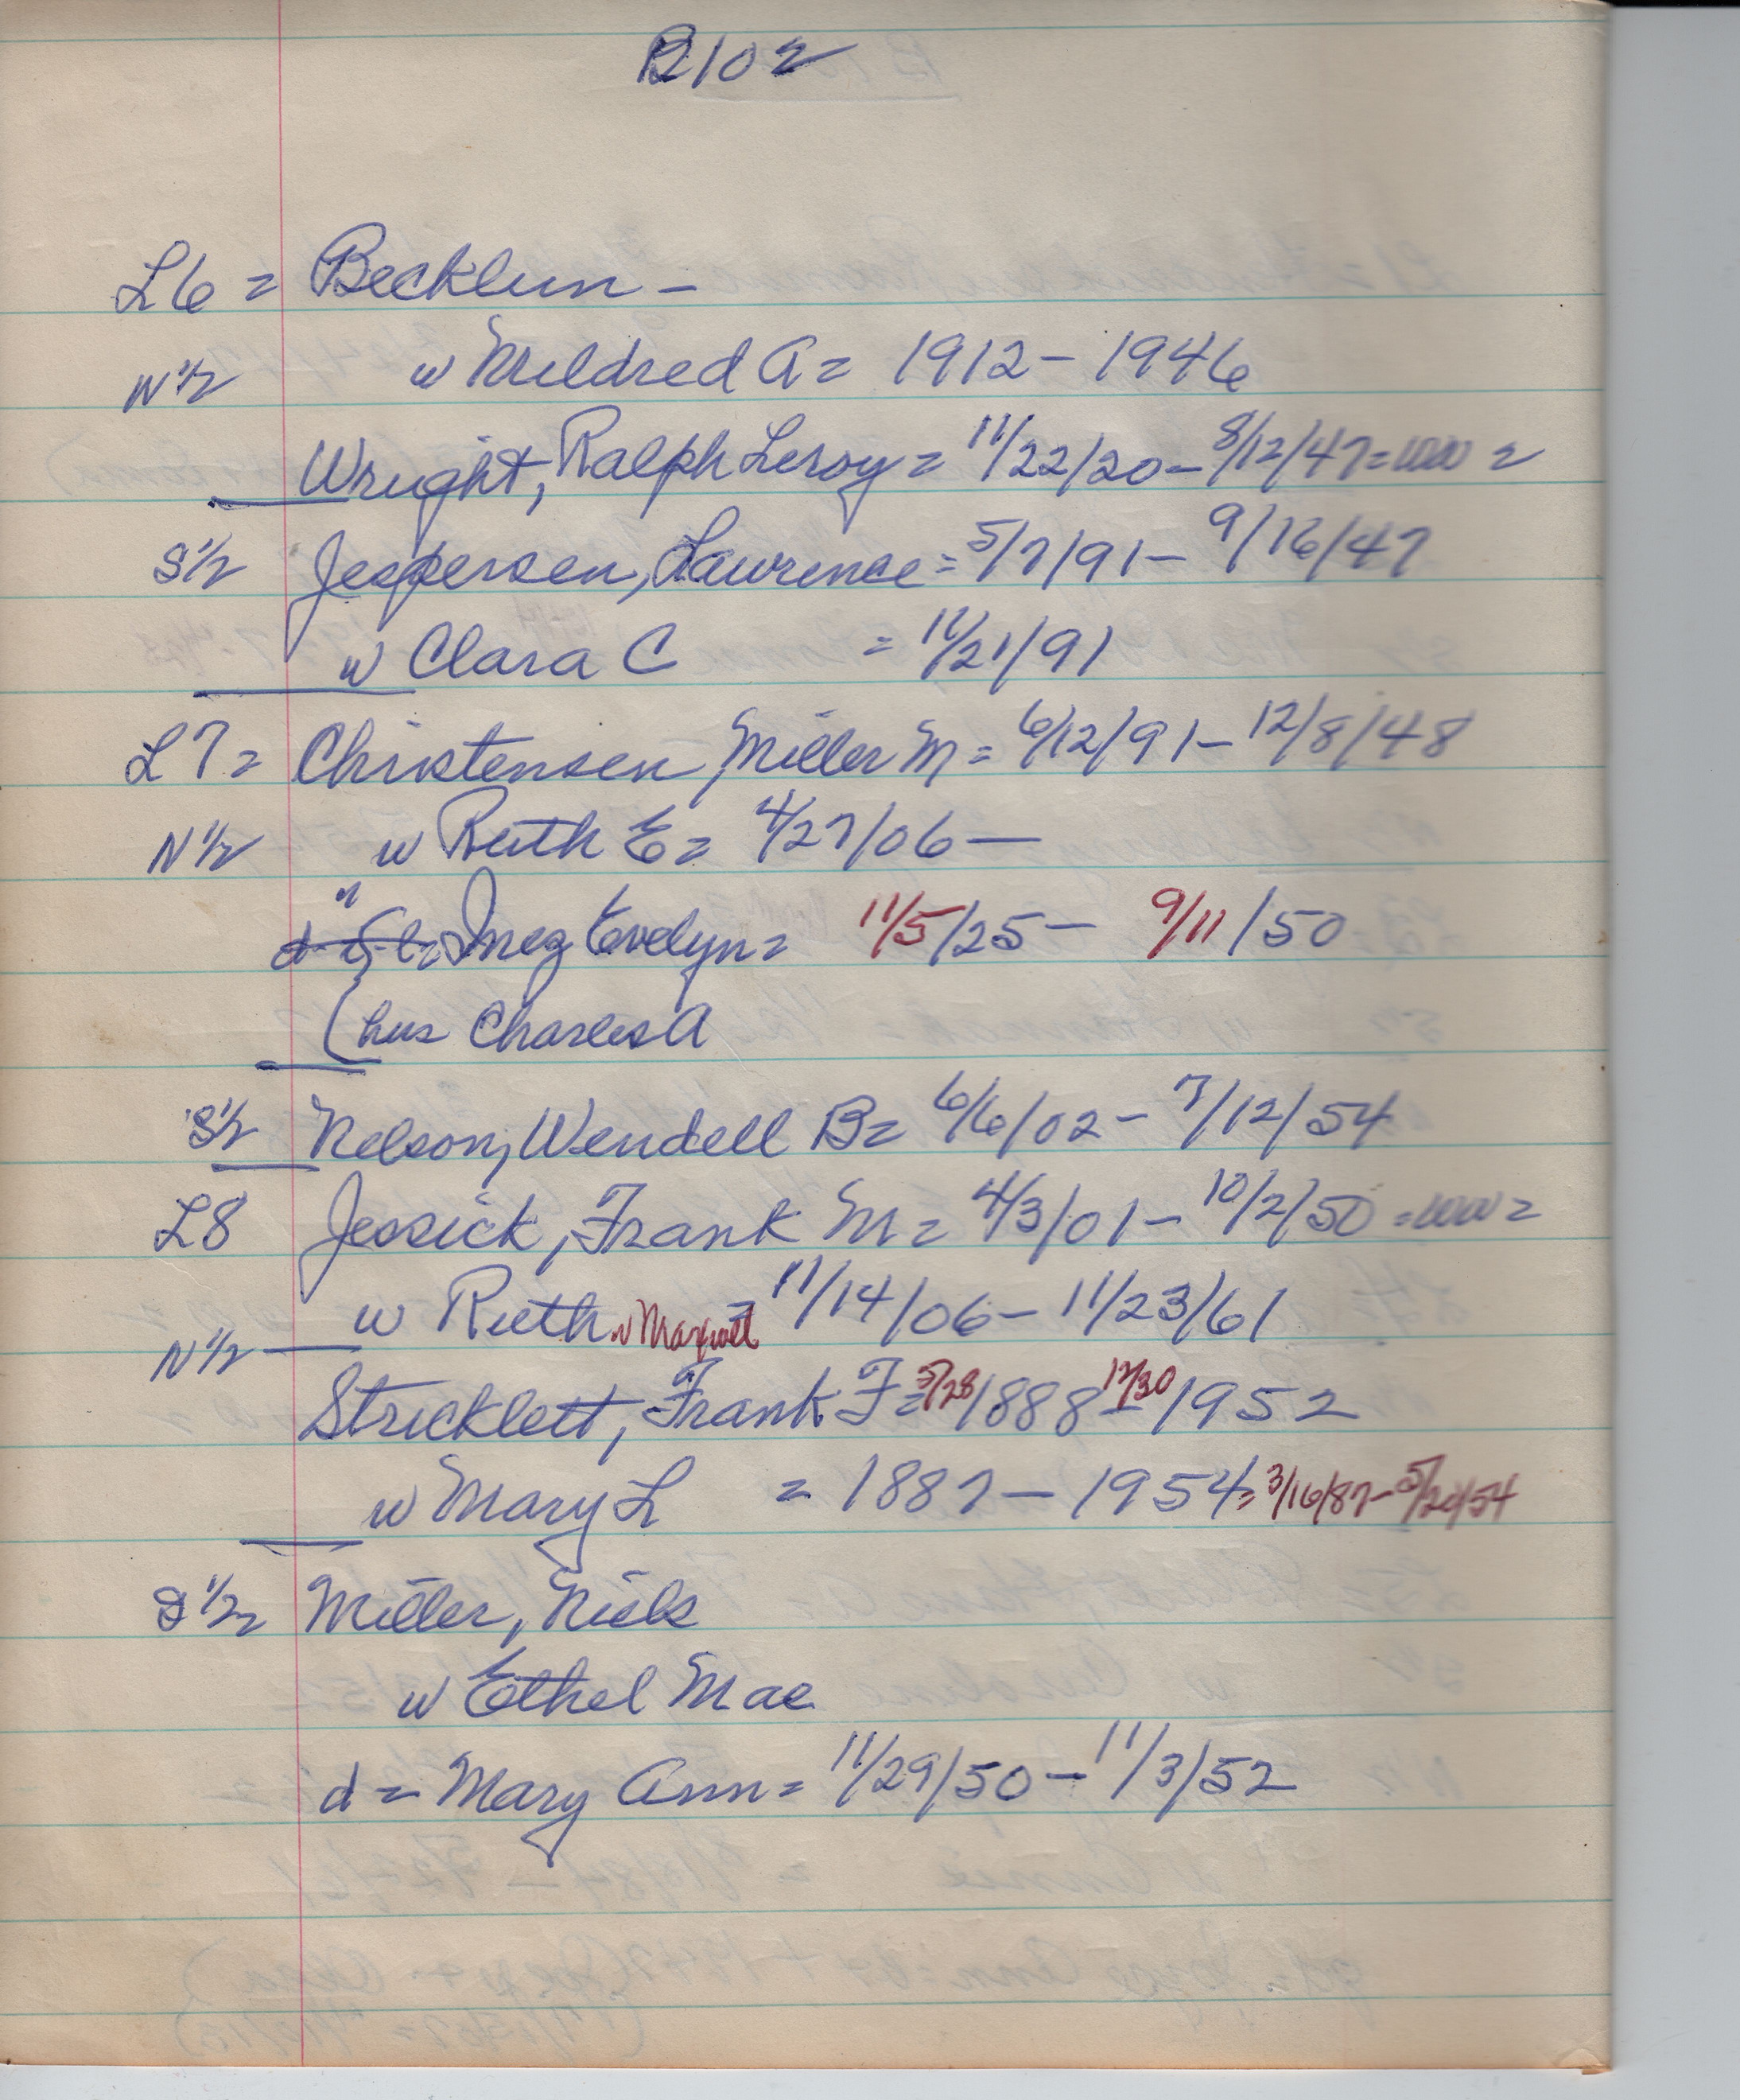 B102
L6 = Becklun -
N 1/2 w Mildred A = 1912 - 1946
Wright, Ralph Leroy = 11/22/20 - 8/12/47 = WW 2
S 1/2 Jespersen, Lawrence = 5/7/91 - 9/16/47
w Clara C = 11/21/91
L7 = Christensen, Miller M = 6/12/91 - 12/8/48
N 1/2 w Ruth E = 4/27/06 -
" Inez Evelyn = 11/5/25 - 9/11/50
(hus Charles A
S 1/2 Nelson, Wendell B = 6/6/02 - 7/12/54
L8 Jessick, Frank M = 4/3/01 - 10/2/50 = WW 2
w Ruth w Maxwell = 11/14/06 - 11/23/61
N 1/2
Stricklett, Frank F = 5/28/1888 - 12/30/1952
w Mary L = 1887 - 1954 = 3/16/87 - 5/20/54
S 1/2 Miller, Niels
w Ethel Mae
d = Mary Ann = 11/29/50 - 11/3/52